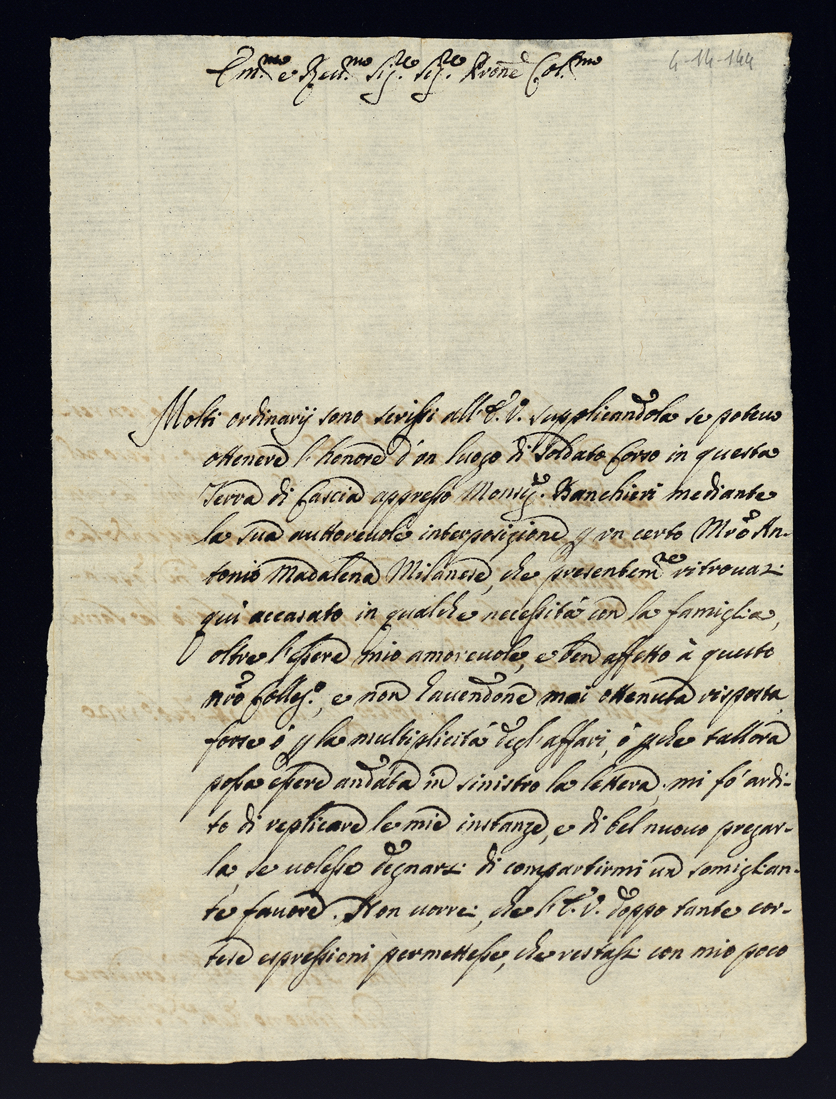 Em.mo e Reu.mo Sig.re Sig.re Prone Col.mo
4-14-144
Molti ordinarij sono scrissi all'E.V. supplicandola se poteuo
ottenere l'honore d'un luogo di Soldato Corso in questa
Terra di Cascia appresso Monsig.r Banchieri mediante
la sua auttoreuole interposizione p un certo Mro An-
tonio Madalena Milanese, che presentem.te ritrouaz:
qui accasato in qualche necessità con la famiglia,
oltre l'essere mio amoreuole, e ben affetto à questo
nro Colleg.o, e non hauendone mai ottenuta risposta,
forse ò p la multiplicità degl'affari, ò pche tallora
possa essere andata in sinistro la lettera, mi fo' ardi-
to di replicare le mie instanze, e di bel nuouo pregar-
la, se uolesse degnarz: di compartirmi un somiglian-
te fauore. Non uorrei, che l'E.V. doppo tante cor-
tese espressioni permettesse, che restasz: con mio poco